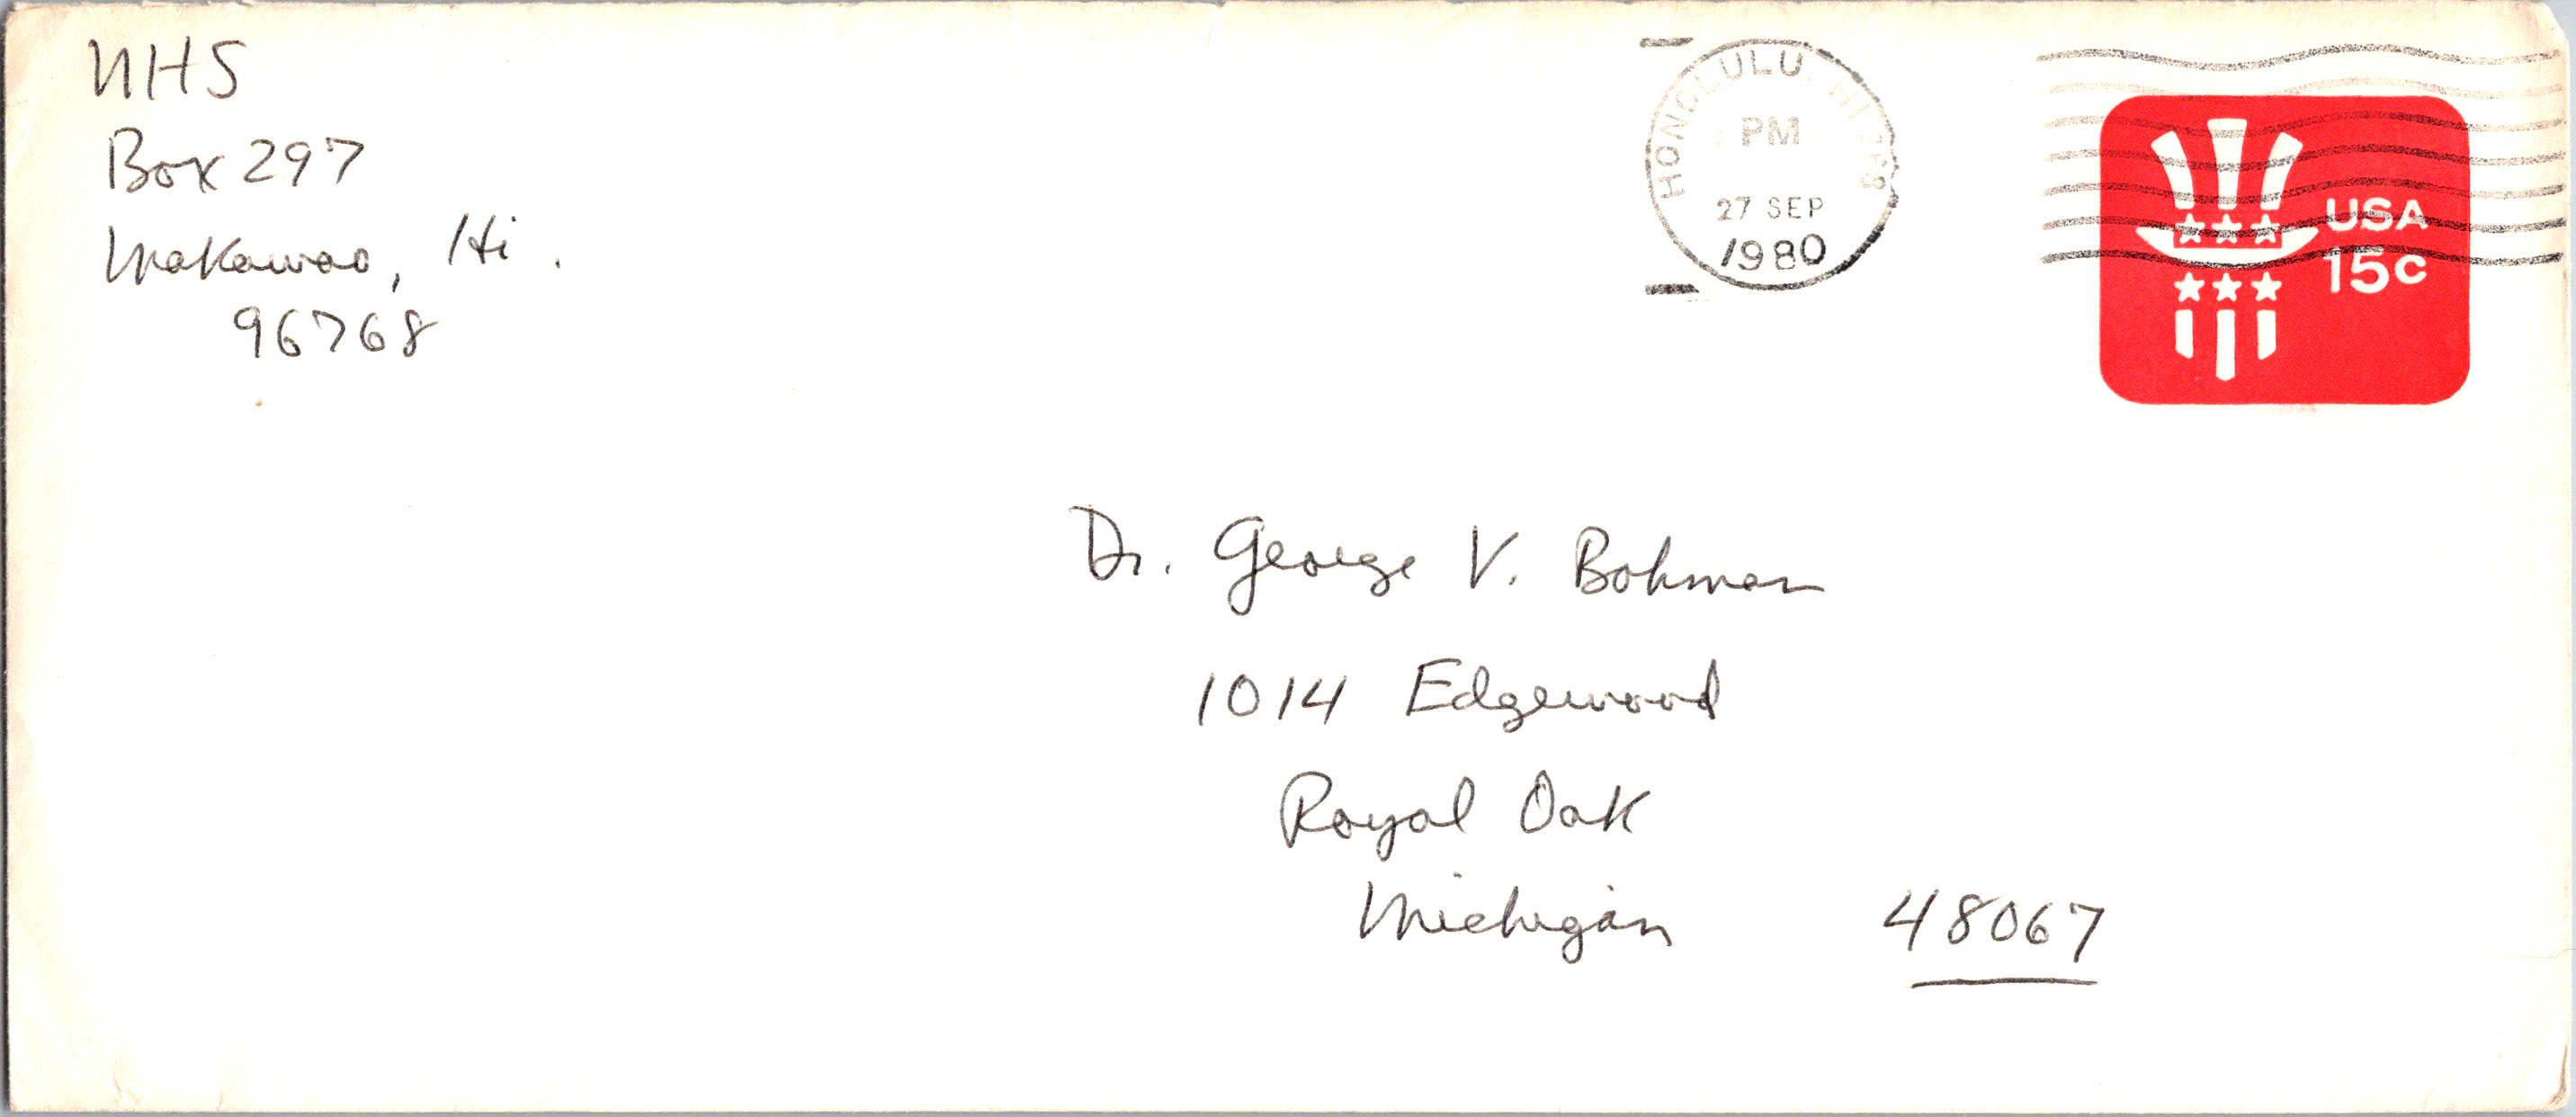 NHS
Box 297
Makawao, Hi.
96768
HONOLULU, HI
PM
27 SEP
1980
USA
15c
Dr. George V. Bohman
1014 Edgewood
Royal Oak
Michigan 48067